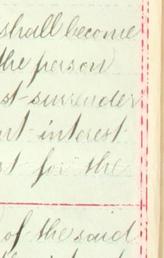 shall become
the person
st surrender
nt interest
st for the
of the said